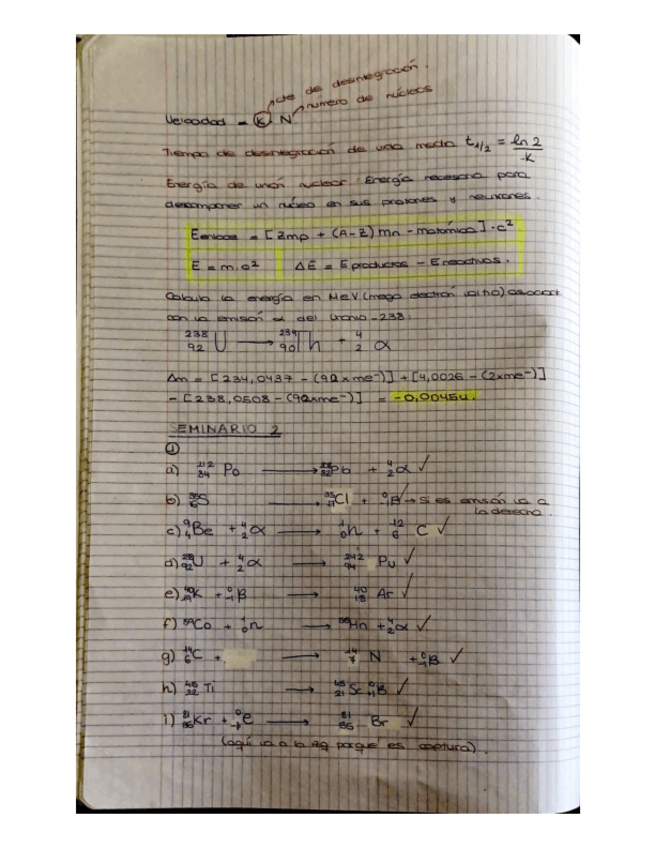 cte de desintegración.
Velocidad = K N número de núcleos
Tiempo de desintegración de vida media t1/2 = ln 2 / K
Energía de unión nuclear: Energía necesaria para
descomponer un núcleo en sus protones y neutrones.
Eenlace = [Zmp + (A-Z) mn - matómica] · c²
E = m·c² ΔE = Eproductos - Ereactivos.
Calcula la energía en MeV (mega electrón
con la emisión α del Uranio-238:
238 92 U → 234 90 Th + 4 2 α
Δm = [234,0437 - (90×me⁻)] + [4,0026 - (2×me⁻)]
- [238,0508 - (92×me⁻)] = -0,0045u.
SEMINARIO 2
①
a) 212 84 Po → Pb + 4 2 α ✓
b) S → Cl + 0 -1 β ✓ → Si es emisión va a
la derecha.
c) 9 4 Be + 4 2 α → 1 0 n + 12 6 C ✓
d) U + 4 2 α → 242 94 Pu ✓
e) 40 19 K + 0 -1 β → 40 18 Ar ✓
f) 59 Co + 1 0 n → 56 Mn + 4 2 α ✓
g) 14 6 C + → 14 7 N + 0 -1 β ✓
h) 45 22 Ti → 45 21 Sc β ✓
i) Kr + 0 -1 e → 81 Br ✓
(aquí va a la izq porque es captura).